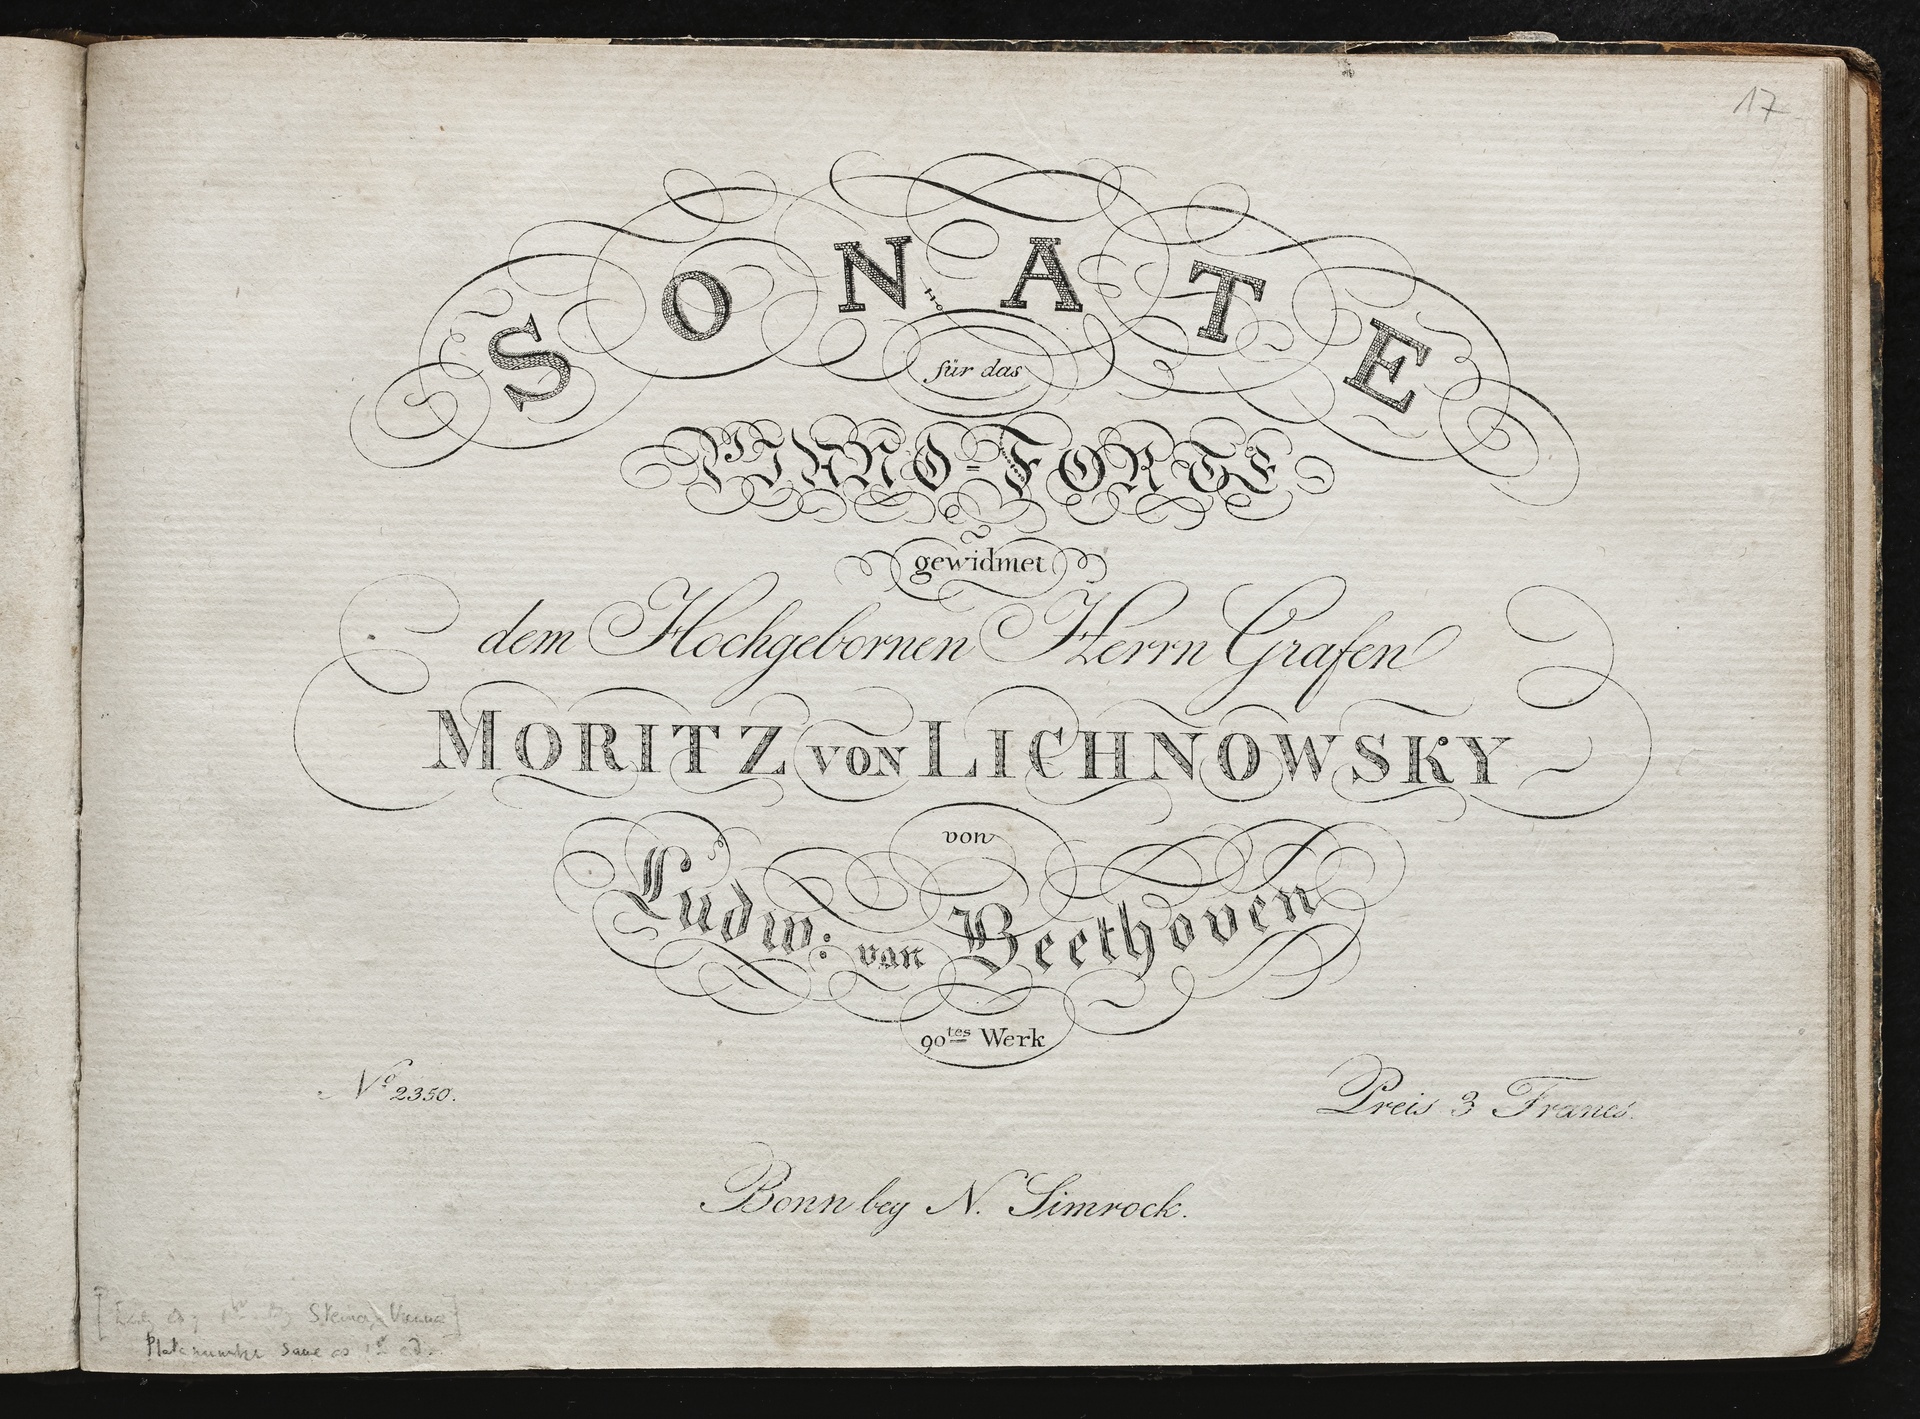 17
SONATE
für das
PIANO=FORTE
gewidmet
dem Hochgebornen Herrn Grafen
MORITZ VON LICHNOWSKY
von
Ludw: van Beethoven
90tes Werk
No 2350.
Preis 3 Francs.
Bonn bey N. Simrock.
by Steiner Vienna]
Plate number same as 1st ed.